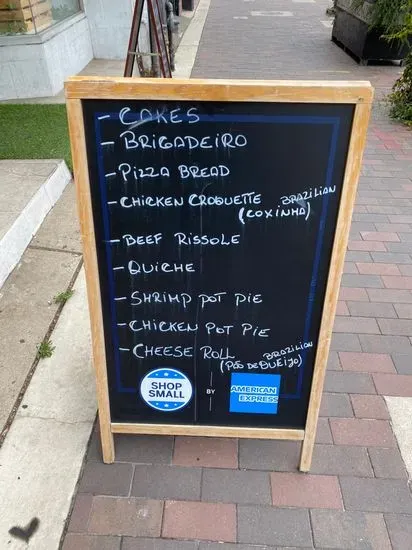 - CAKES
- BRIGADEIRO
- PIZZA BREAD
- CHICKEN CROQUETTE BRAZILIAN
(COXINHA)
- BEEF RISSOLE
- QUICHE
- SHRIMP POT PIE
- CHICKEN POT PIE
- CHEESE ROLL BRAZILIAN
(PÃO DE QUEIJO)
SHOP
SMALL
BY
AMERICAN
EXPRESS